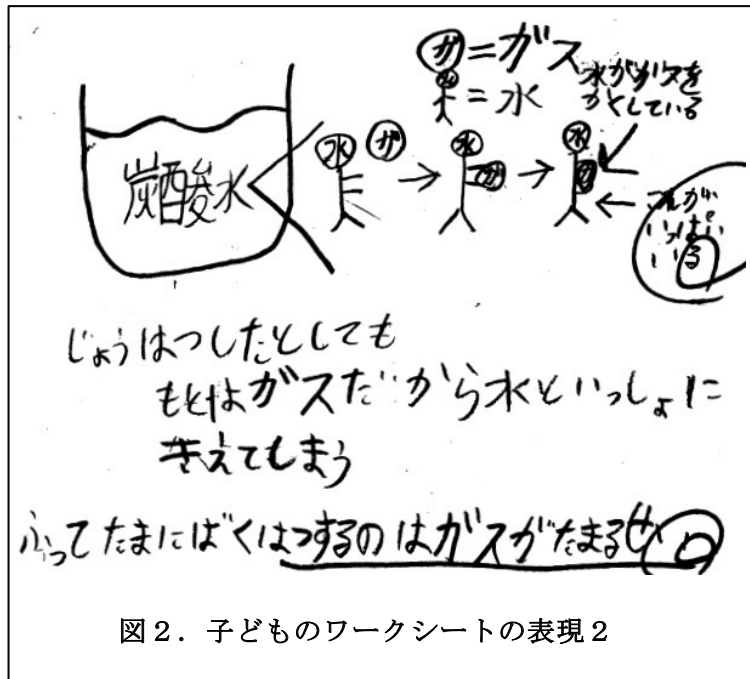 ガ=ガス
水=水
水がガスを
かくしている
炭酸水
水 ガ → 水 ガ → 水 ガ
これが
いっぱい
いる
じょうはつしたとしても
もとはガスだから水といっしょに
きえてしまう
ふってたまにばくはつするのはガスがたまるせい
図2．子どものワークシートの表現2